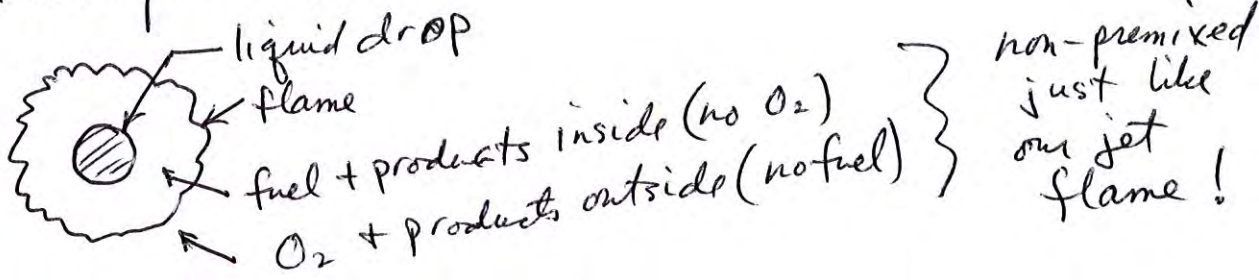 liquid drop
flame
fuel + products inside (no O2)
O2 + products outside (no fuel)
non-premixed
just like
our jet
flame!